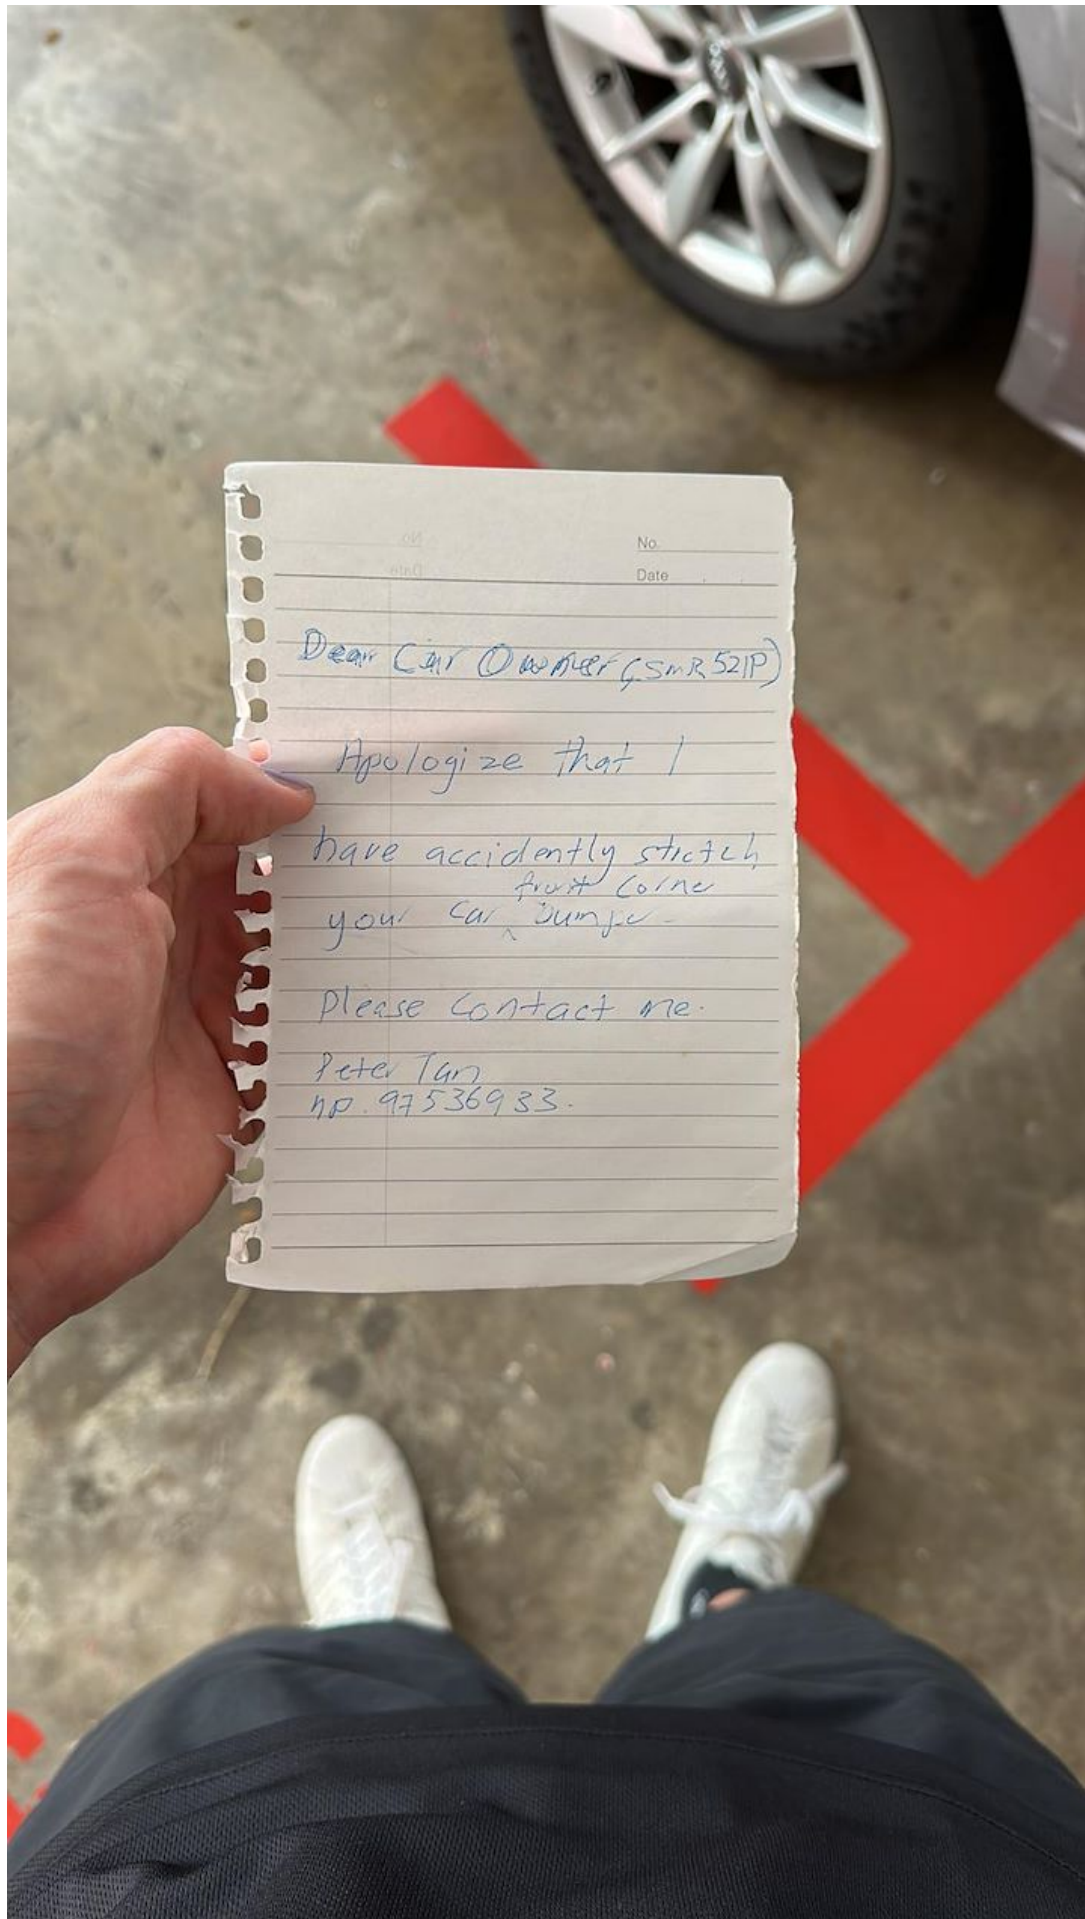 No.
Date
Dear Car Owner (SMR521P)
Apologize that I
have accidently stretch
front corne
your car ^ bumpe.
Please contact me.
Peter Tan
hp. 97536933.